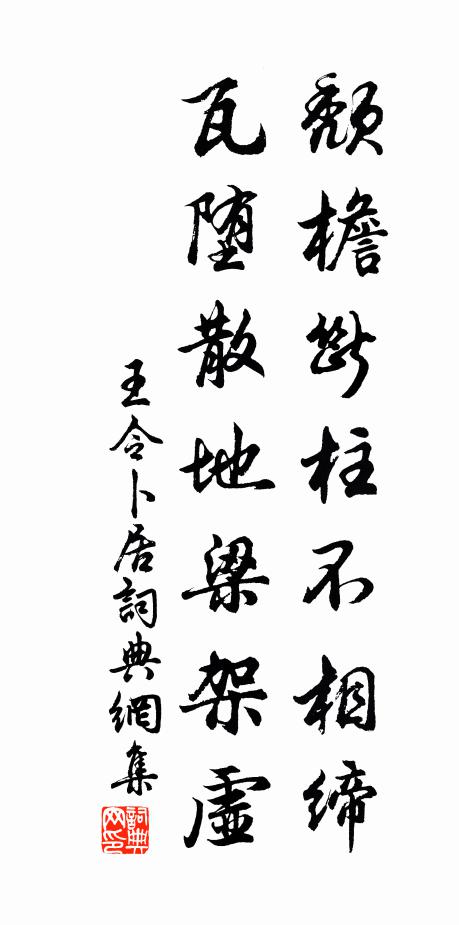 頹檐斷柱不相締
瓦墮散地梁架虛
王令卜居詞典網集
詞典網印